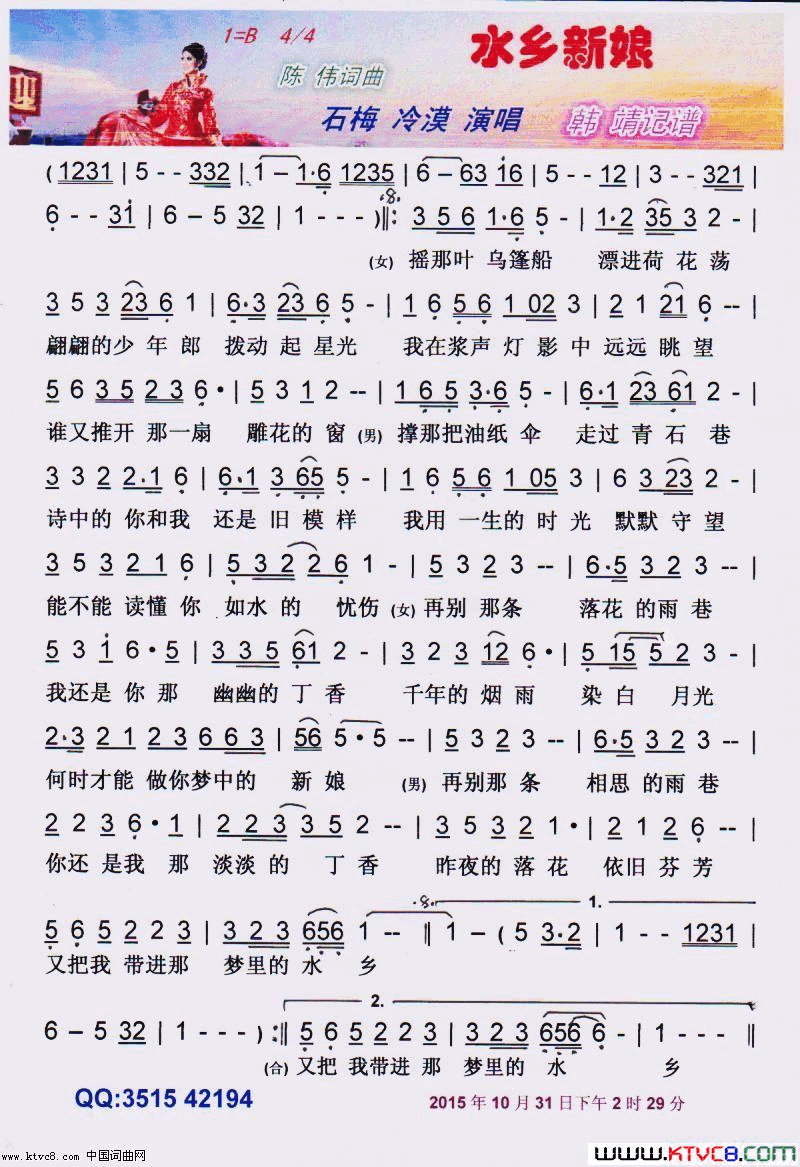 1=B 4/4
水乡新娘
陈 伟词曲
迎
石梅 冷漠 演唱 韩 靖记谱
( 1231 | 5 - - 332 | 1 - 1·6 1235 | 6 - 63 16 | 5 - - 12 | 3 - - 321 |
6 - - 31 | 6 - 5 32 | 1 - - - ) ‖: 3 5 6 1·6 5 - | 1·2 35 3 2 - |
(女) 摇那叶 乌篷船 漂进荷 花 荡
3 5 3 23 6 1 | 6·3 23 6 5 - | 1 6 56 1 02 3 | 2 1 21 6 - - |
翩翩的少 年 郎 拨动 起 星光 我在浆声 灯 影 中 远远 眺 望
5 6 35 23 6· | 5 3 1 2 - - | 1 65 3·6 5 - | 6·1 23 61 2 - |
谁又推开 那一扇 雕花的 窗 (男) 撑那把油纸 伞 走过 青 石 巷
3 3 2 2·1 6 | 6·1 3 65 5 - | 1 6 56 1 05 3 | 6 3 23 2 - |
诗中的 你和我 还是 旧 模样 我用 一生的 时 光 默默 守 望
3 5 3 2 2 1 6 | 5 3 2 2 2 6 1 - | 5 3 2 3 - - | 6·5 3 2 3 - |
能不能 读懂 你 如水 的 忧伤 (女) 再别 那条 落花 的雨 巷
5 3 1 6·5 | 3 3 5 61 2 - | 3 2 3 12 6· | 5 15 5 2 3 - |
我还是 你 那 幽幽的 丁 香 千年的 烟 雨 染 白 月光
2·3 2 1 2 3 6 6 3 | 56 5·5 - - | 5 3 2 3 - - | 6·5 3 2 3 - |
何时才能 做你梦中的 新 娘 (男) 再别那 条 相思 的雨 巷
2 2 3 6·1 | 2 2 3 3 5 2 - - | 3 5 3 2 1· | 2 1 2 6 - - |
你还 是我 那 淡淡 的 丁 香 昨夜的 落花 依旧 芬芳
1.
5 6 5 2 2 3 | 3 2 3 656 1 - - ‖ 1 - ( 5 3·2 | 1 - - 1231 |
又把我 带进那 梦里的 水 乡
2.
6 - 5 32 | 1 - - - ) :‖ 5 6 5 2 2 3 | 3 2 3 656 6 - | 1 - - - ‖
(合) 又把 我带进 那 梦里的 水 乡
QQ:3515 42194
2015 年 10 月 31 日下午 2 时 29 分
www.ktvc8.com 中国词曲网
www.KTVC8.com